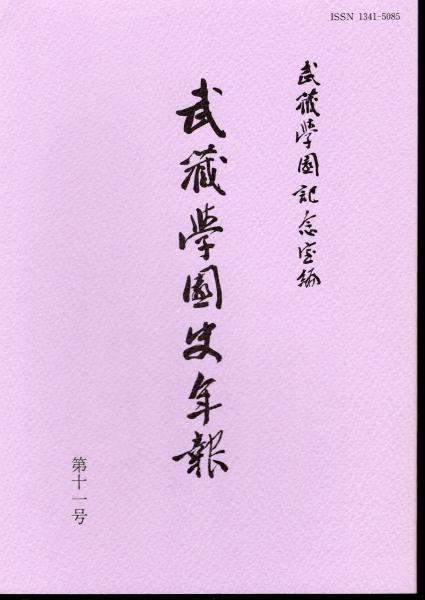 ISSN 1341-5085
武蔵學園記念室編
武蔵學園史年報
第十一号